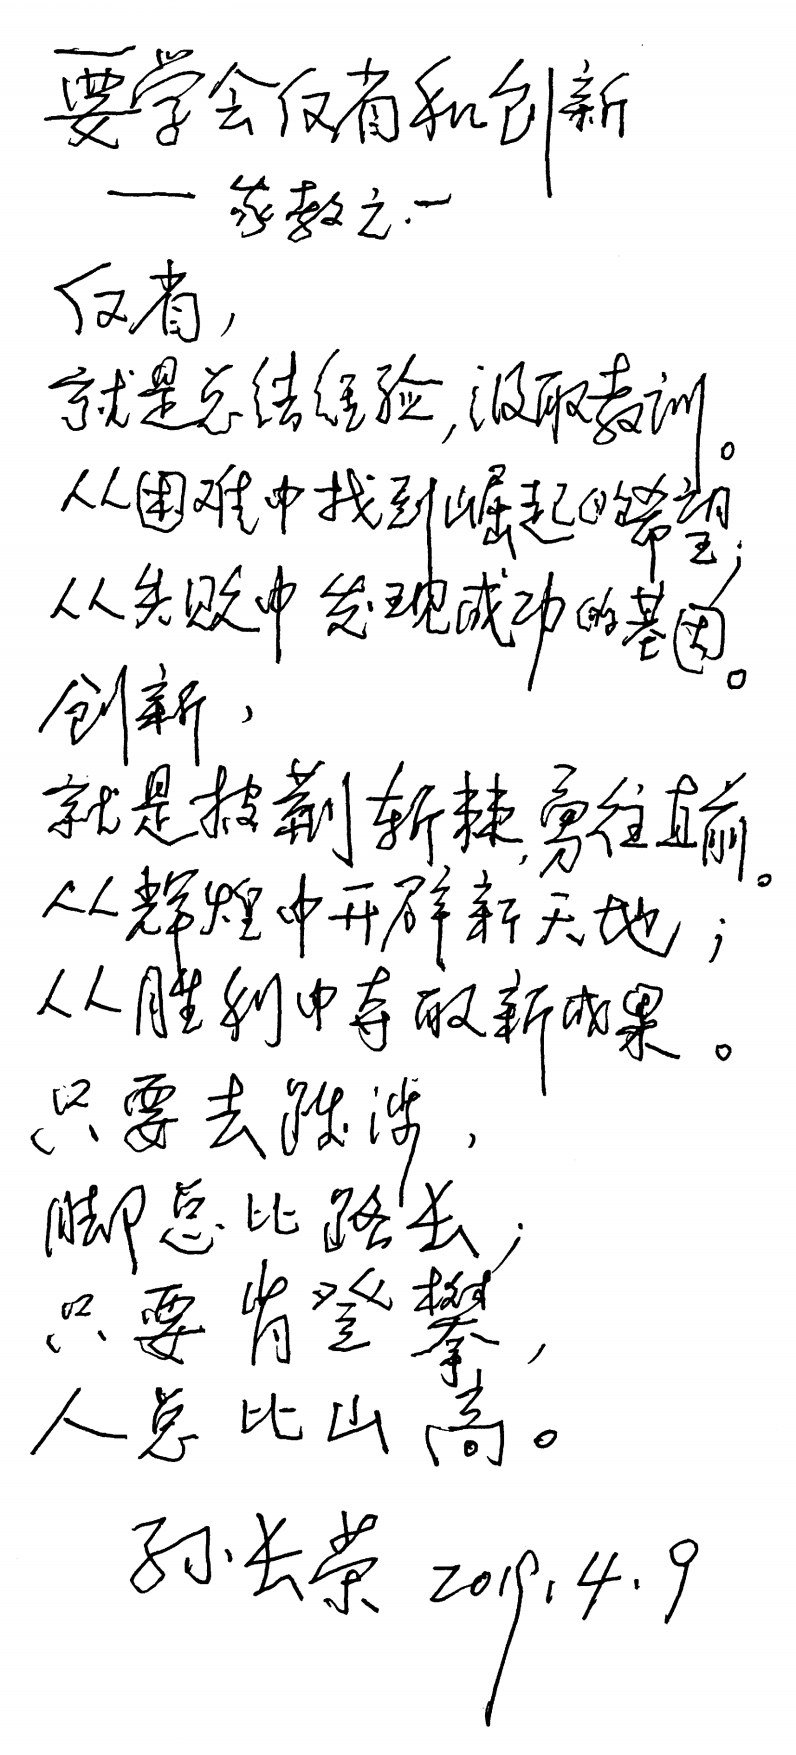 要学会反省和创新
——家教之一
反省,
就是总结经验,汲取教训。
从困难中找到崛起的希望;
从失败中发现成功的基因。
创新,
就是披荆斩棘,勇往直前。
从辉煌中开辟新天地;
从胜利中夺取新成果。
只要去跋涉,
脚总比路长;
只要肯登攀,
人总比山高。
孙长荣 2019.4.9